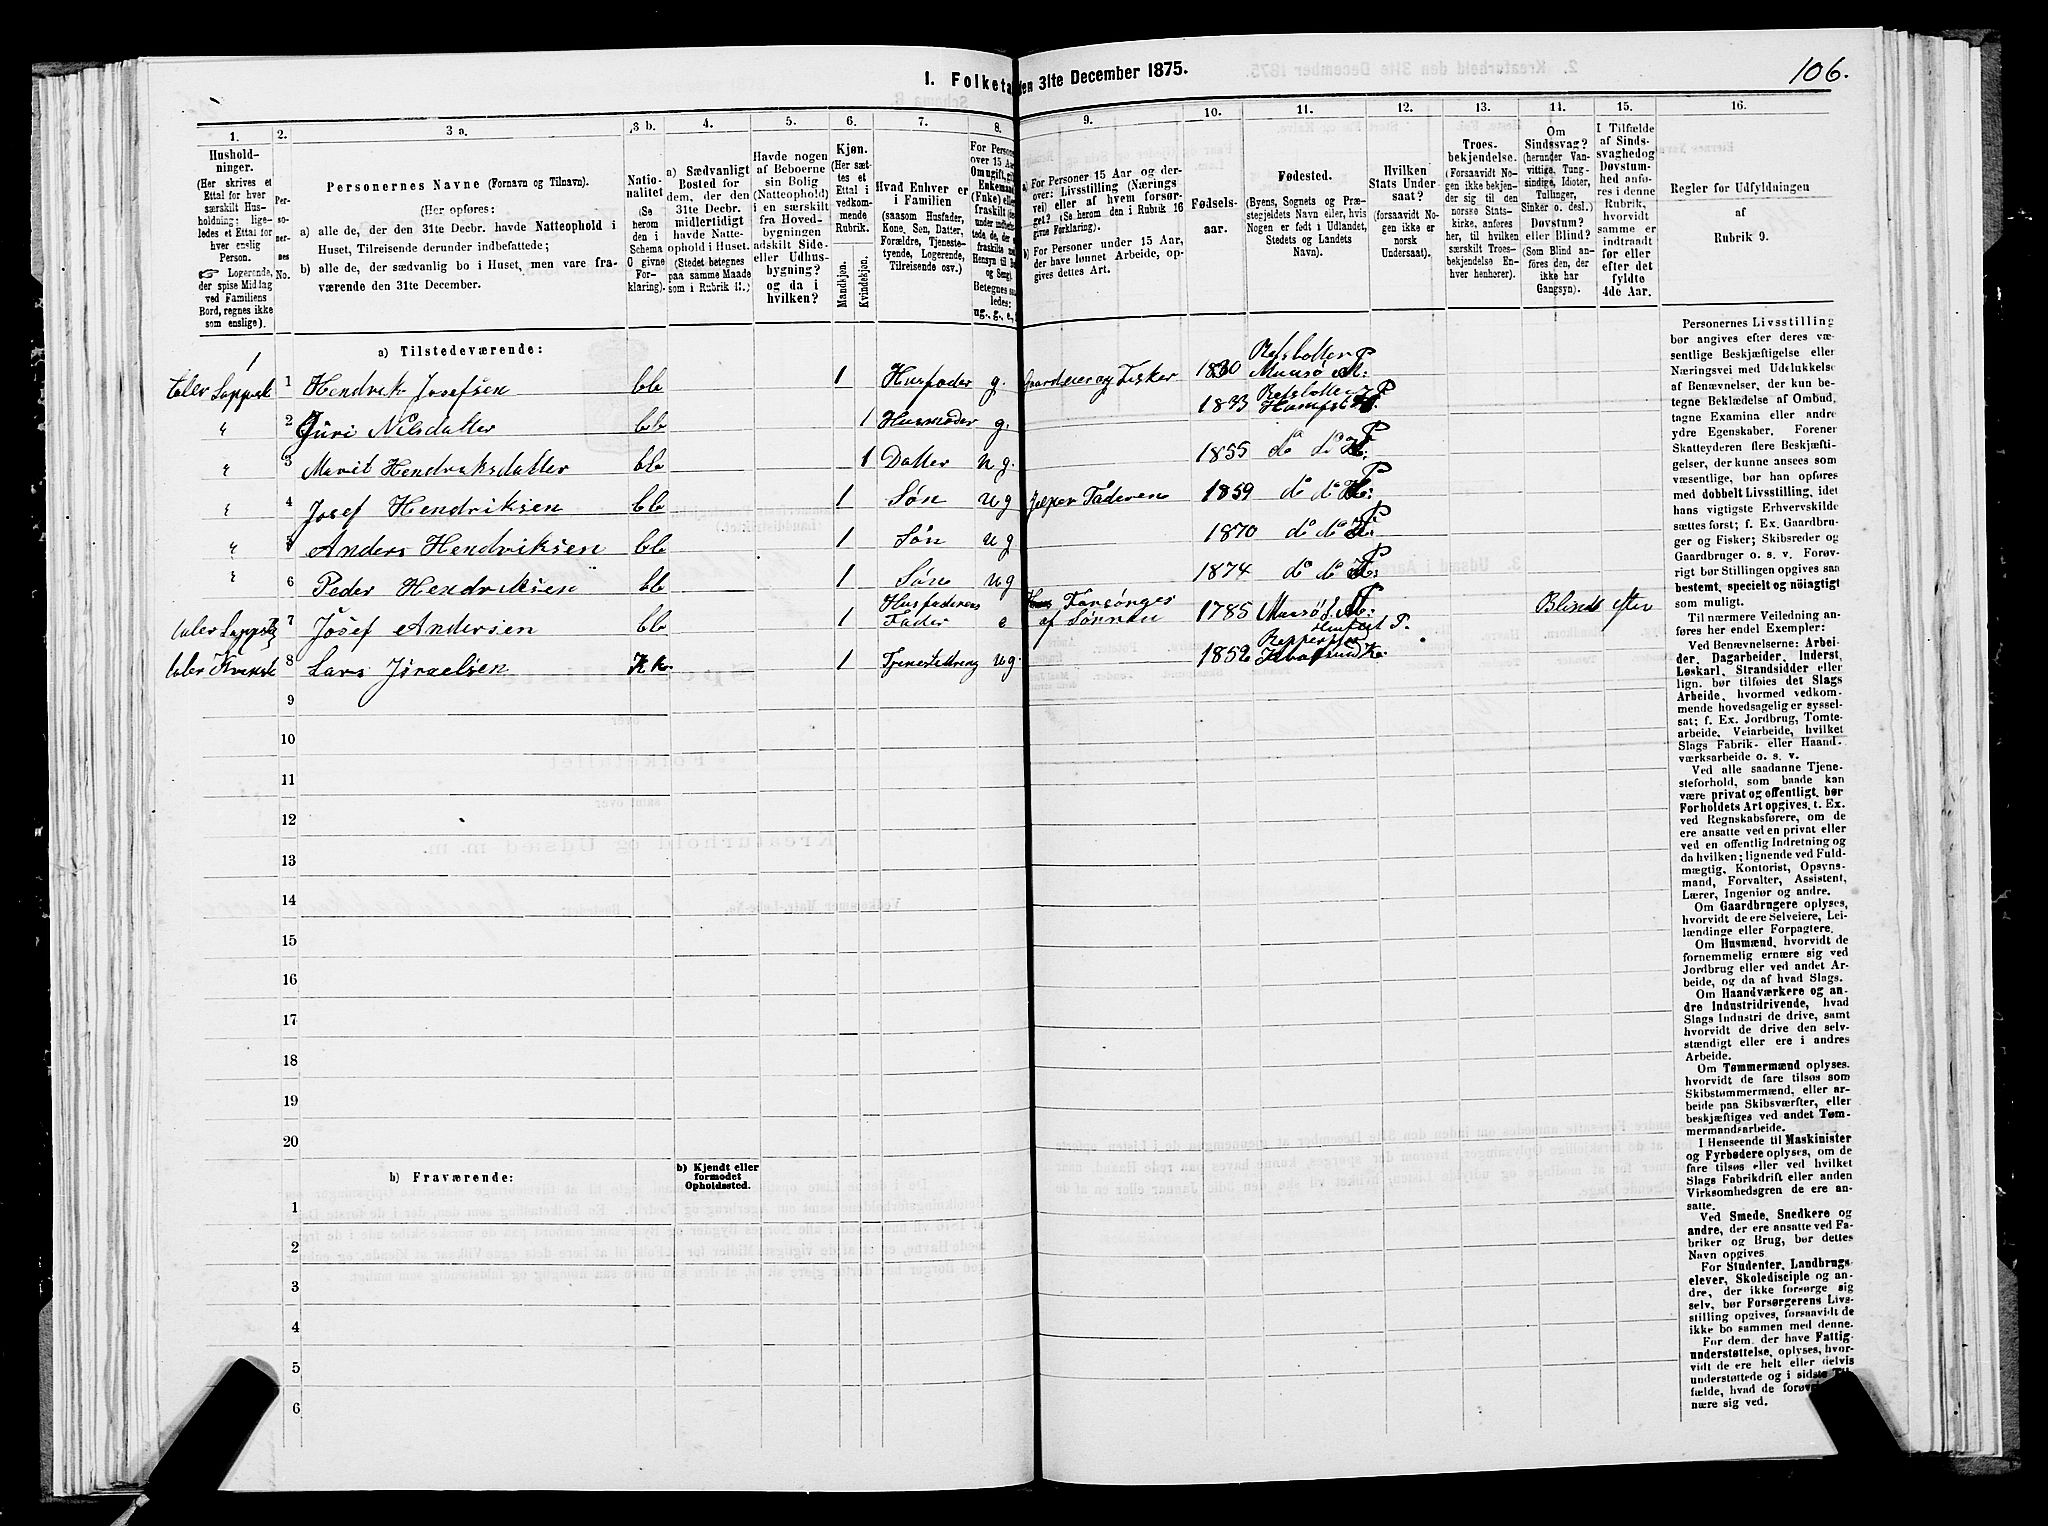 1. Folketa
den 31te December 1875.
106.
1.
2.
3 a.
3 b.
4.
5.
6.
7.
8.
9.
10.
11.
12.
13.
14.
15.
16.
Hushold-
ninger.
(Her skrives et
Ettal for hver
særskilt Hus-
holdning; lige-
ledes et Ettal for
hver enslig
Person.
☞ Logerende,
der spise Middag
ved Familiens
Bord, regnes ikke
som enslige).
Per-
so-
ner-
nes
No.
Personernes Navne (Fornavn og Tilnavn).
(Her opføres:
a) alle de, der den 31te Decbr. havde Natteophold i
Huset, Tilreisende derunder indbefattede;
b) alle de, der sædvanlig bo i Huset, men vare fra-
værende den 31te December.
Natio-
nalitet
(Se
herom
den i
Schema
G givne
For-
klaring).
a) Sædvanligt
Bosted for
dem, der den
31te Decbr.
midlertidigt
havde Natte-
ophold i Huset.
(Stedet betegnes
paa samme Maade
som i Rubrik 11.)
Havde nogen
af Beboerne
sin Bolig
(Natteophold)
i en særskilt
fra Hoved-
bygningen
adskilt Side-
eller Udhus-
bygning?
og da i
hvilken?
Kjøn.
(Her sæt-
tes et
Ettal i
vedkom-
mende
Rubrik.
Mandkjøn.
Kvindekjøn.
Hvad Enhver er
i Familien
(saasom Husfader,
Kone, Søn, Datter,
Forældre, Tjeneste-
tyende, Logerende,
Tilreisende osv.)
For Person
over 15 Aar
Om ugift, gif
Enkemand
(Fnke) eller
fraskilt
ug., g., e.,
a) For Personer 15 Aar og der-
over: Livsstilling (Nærings
vei) eller af hvem forsør-
get? (Se herom den i Rubrik 16
givne Førklaring).
b) For Personer under 15 Aar,
der have lønnet Arbeide, op-
gives dettes Art.
Fødsels-
aar.
Fødested.
(Byens, Sognets og Præ-
stegjeldets Navn eller, hvis
Nogen er født i Udlandet,
Stedets og Landets
Navn).
Hvilken
Stats Under-
saat?
(forsaavidt No-
gen ikke er
norsk
Undersaat).
Troes-
bekjendelse.
(Forsaavidt No-
gen ikke bekjen-
der sig til den
norske Stats-
kirke, anføres
her, til hvilken
særskilt Troes-
bekjendelse En-
hver henhører).
Om
Sindssvag?
(herunder Van-
vittige, Tung-
sindige, Idioter,
Tullinger,
Sinker o. desl.)
Døvstum?
eller Blind?
(Som Blind an-
føres den, der
ikke har
Gangsyn).
I Tilfælde
af Sinds-
svaghed og
Døvstum-
hed anfø-
res i denne
Rubrik,
hvorvidt
samme er
indtraadt
før eller
efter det
fyldte
4de Aar.
Regler for Udfyldningen
af
Rubrik 9.
a) Tilstedeværende:
1
taler Lappisk 1 Hendrik Josefsen bb 1 Husfader g. Gaardmer og Fisker 1830 Refsbotten Maasø M: P
" 2 Guri Nilsdatter bb 1 Husmoder g. 1833 Refsbotten Hamfst H: P
" 3 Marit Hendriksdatter bb 1 Datter ug. 1855 do do P
" 4 Josef Hendriksen bb 1 Søn ug Hjelper Faderen 1859 do do P
" 5 Anders Hendriksen bb 1 Søn ug 1870 do do P
" 6 Peder Hendriksen bb 1 Søn ug 1874 do do P
taler Lappisk 7 Josef Andersen bb 1 Husfaderens Fader e Forsørges af Sønnen 1785 Maasø Blind efter
taler Kvænsk 8 Lars Jsraelsen KK 1 Tjenestedreng ug. 1852 Repperfjord Kvalsund Hmfest P.
9
10
11
12
13
14
15
16
17
18
19
20
b) Fraværende:
b) Kjendt eller
formodet
Opholdssted.
1
2
3
4
5
6
Personernes Livsstilling
bør angives efter deres væ-
sentlige Beskjæftigelse eller
Næringsvei med Udelukkelse
af Benævnelser, der kun be-
tegne Beklædelse af Ombud,
tagne Examina eller andre
ydre Egenskaber. Forener
Skatteyderen flere Beskjæfti-
gelser, der kunne ansees som
væsentlige, bør han opføres
med dobbelt Livsstilling, idet
hans vigtigste Erhvervskilde
sættes først; f. Ex. Gaardbru-
ger og Fisker; Skibsreder og
Gaardbruger o. s. v. Forøv-
rigt bør Stillingen opgives saa
bestemt, specielt og nöiagtigt
som muligt.
Til nærmere Veiledning an-
føres her endel Exempler:
Ved Benævnelserne: Arbei-
der, Dagarbeider, Inderst,
Løskarl, Strandsidder eller
lign. bør tilføies det Slags
Arbeide, hvormed vedkom-
mende hovedsagelig er syssel-
sat; f. Ex. Jordbrug, Tomte-
arbeide, Veiarbeide, hvilket
Slags Fabrik- eller Haand-
værksarbeide o. s. v.
Ved alle saadanne Tjene-
steforhold, som baade kan
være privat og offentligt, bør
Forholdets Art opgives, t. Ex.
ved Regnskabsførere, om de
ere ansatte ved en privat eller
ved en offentlig Indretning og
da hvilken; lignende ved Fuld-
mægtig, Kontorist, Opsyns-
mand, Forvalter, Assistent,
Lærer, Ingeniør og andre.
Om Gaardbrugere oplyses,
hvorvidt de ere Selveiere, Lei-
lændinge eller Forpagtere.
Om Husmænd, hvorvidt de
fornemmelig ernære sig ved
Jordbrug eller ved andet Ar-
beide, og da af hvad Slags.
Om Haandværkere og an-
dre Industridrivende, hvad
Slags Industri de drive, samt
hvorvidt de drive den selv-
stændigt eller ere i andres
Arbeide.
Om Tømmermænd oplyses,
hvorvidt de fare tilsøs som
Skibstømmermænd, eller ar-
beide paa Skibsværfter, eller
beskjæftiges ved andet Tøm-
mermandsarbeide.
I Henseende til Maskinister
og Fyrbødere oplyses, om de
fare tilsøs eller ved hvilket
Slags Fabrikdrift eller anden
Virksomhedsgren de ere an-
satte.
Ved Smede, Snedkere og
andre, der ere ansatte ved Fa-
briker og Brug, bør dettes
Navn opgives.
For Studenter, Landbrugs
elever, Skoledisciple og an-
dre, der ikke forsørge sig
selv, bør Forsørgerens Livs-
stilling opgives, forsaavidt de
ikke bo sammen med denne.
For dem, der have Fattig-
understøttelse, oplyses, hvor-
vidt de ere helt eller delvis
understøttede og i sidste Til-
fælde, hvad de forøv
nære sig ved.